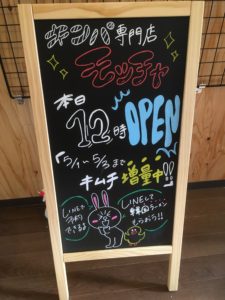 キンパ専門店
モッチャ
本日
12時OPEN
5/1～5/3まで
キムチ増量中!!
LINEで
予約
できるよ
LINEして
韓国ラーメン
もらおう!!